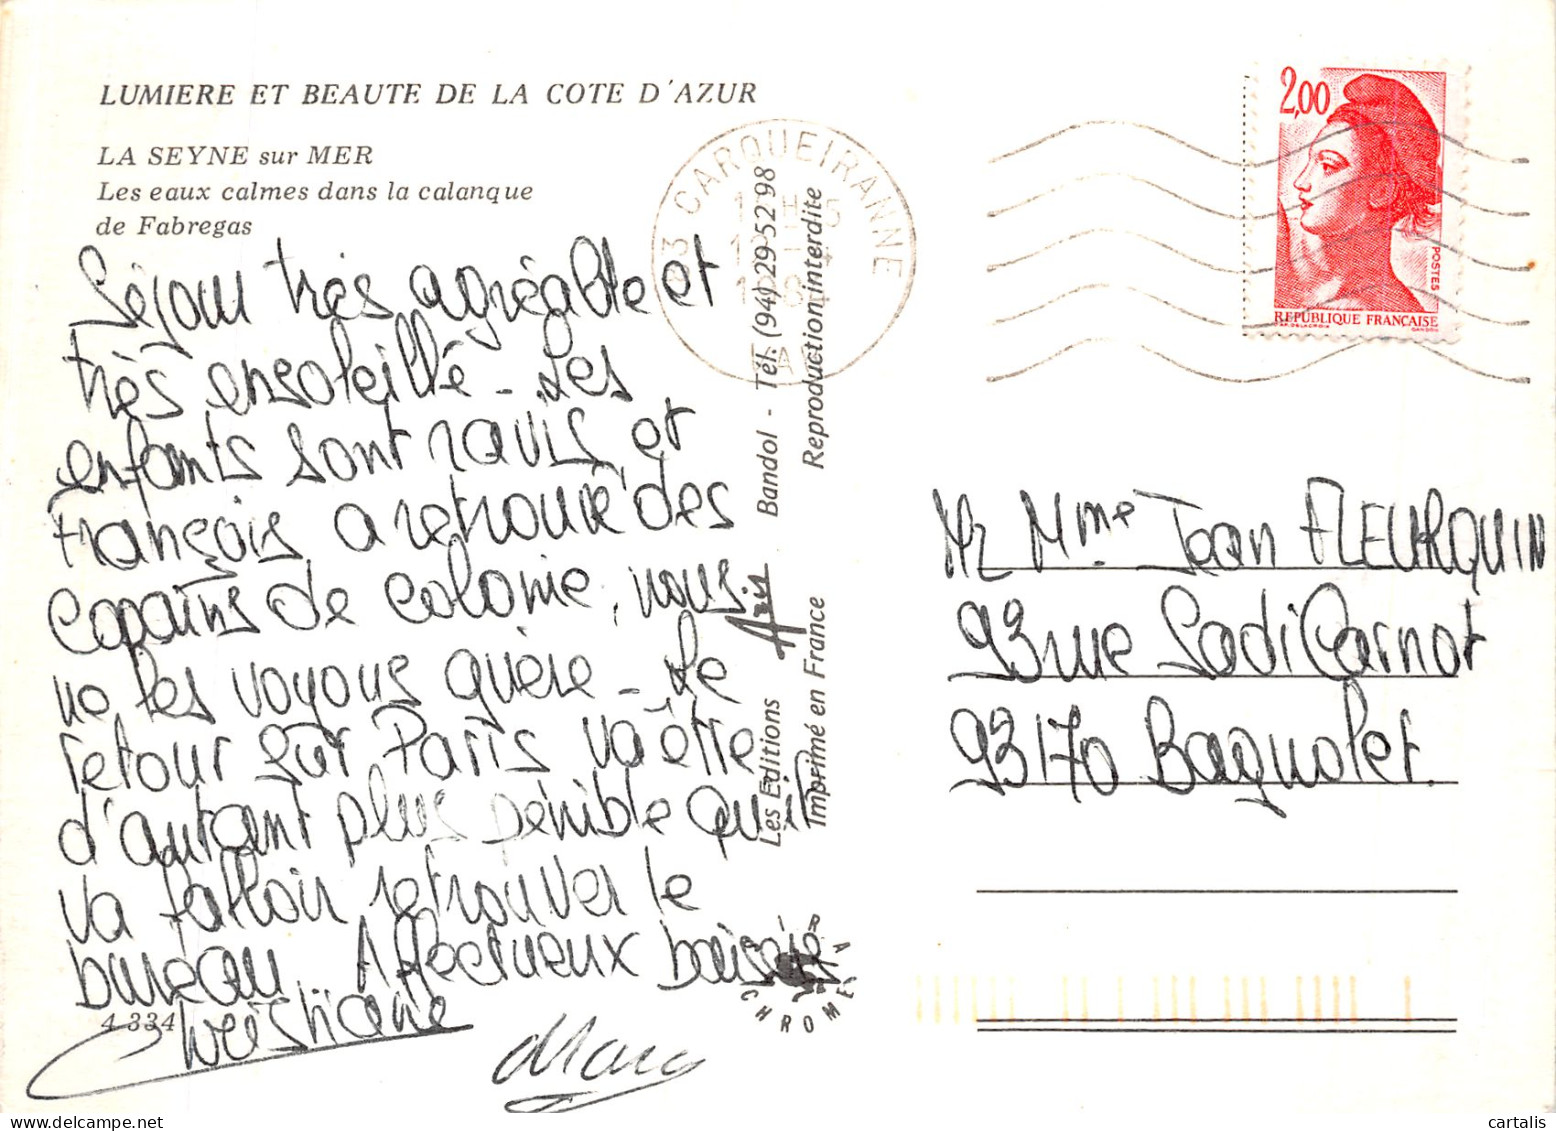 LUMIERE ET BEAUTE DE LA COTE D'AZUR
LA SEYNE sur MER
Les eaux calmes dans la calanque
de Fabregas
Séjour très agréable et
très ensoleillé - Les
enfants sont ravis, et
François a retrouvé des
copains de colonie, nous
ne les voyons guère - Le
retour sur Paris va être
d'autant plus pénible qu'il
va falloir retrouver le
bureau. Affectueux baisers
Christiane
Marc
4.334
Les Editions Aris Bandol - Tél. (94) 29 52 98
Imprimé en France Reproduction interdite
CHROME
CARQUEIRANNE
2,00
POSTES
REPUBLIQUE FRANÇAISE
AP. DELACROIX
GANDON
Mr Mme Jean FLEURQUIN
93 rue Sadi Carnot
93170 Bagnolet.
cartalis